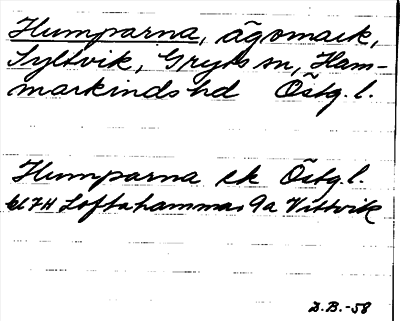 Humparna, ägomark,
Syltvik, Gryts sn, Ham-
markinds hd Östg. l.
Humparna ek Östg. l.
bl 7H Loftahammar 9a Vittvik
D.B.-58